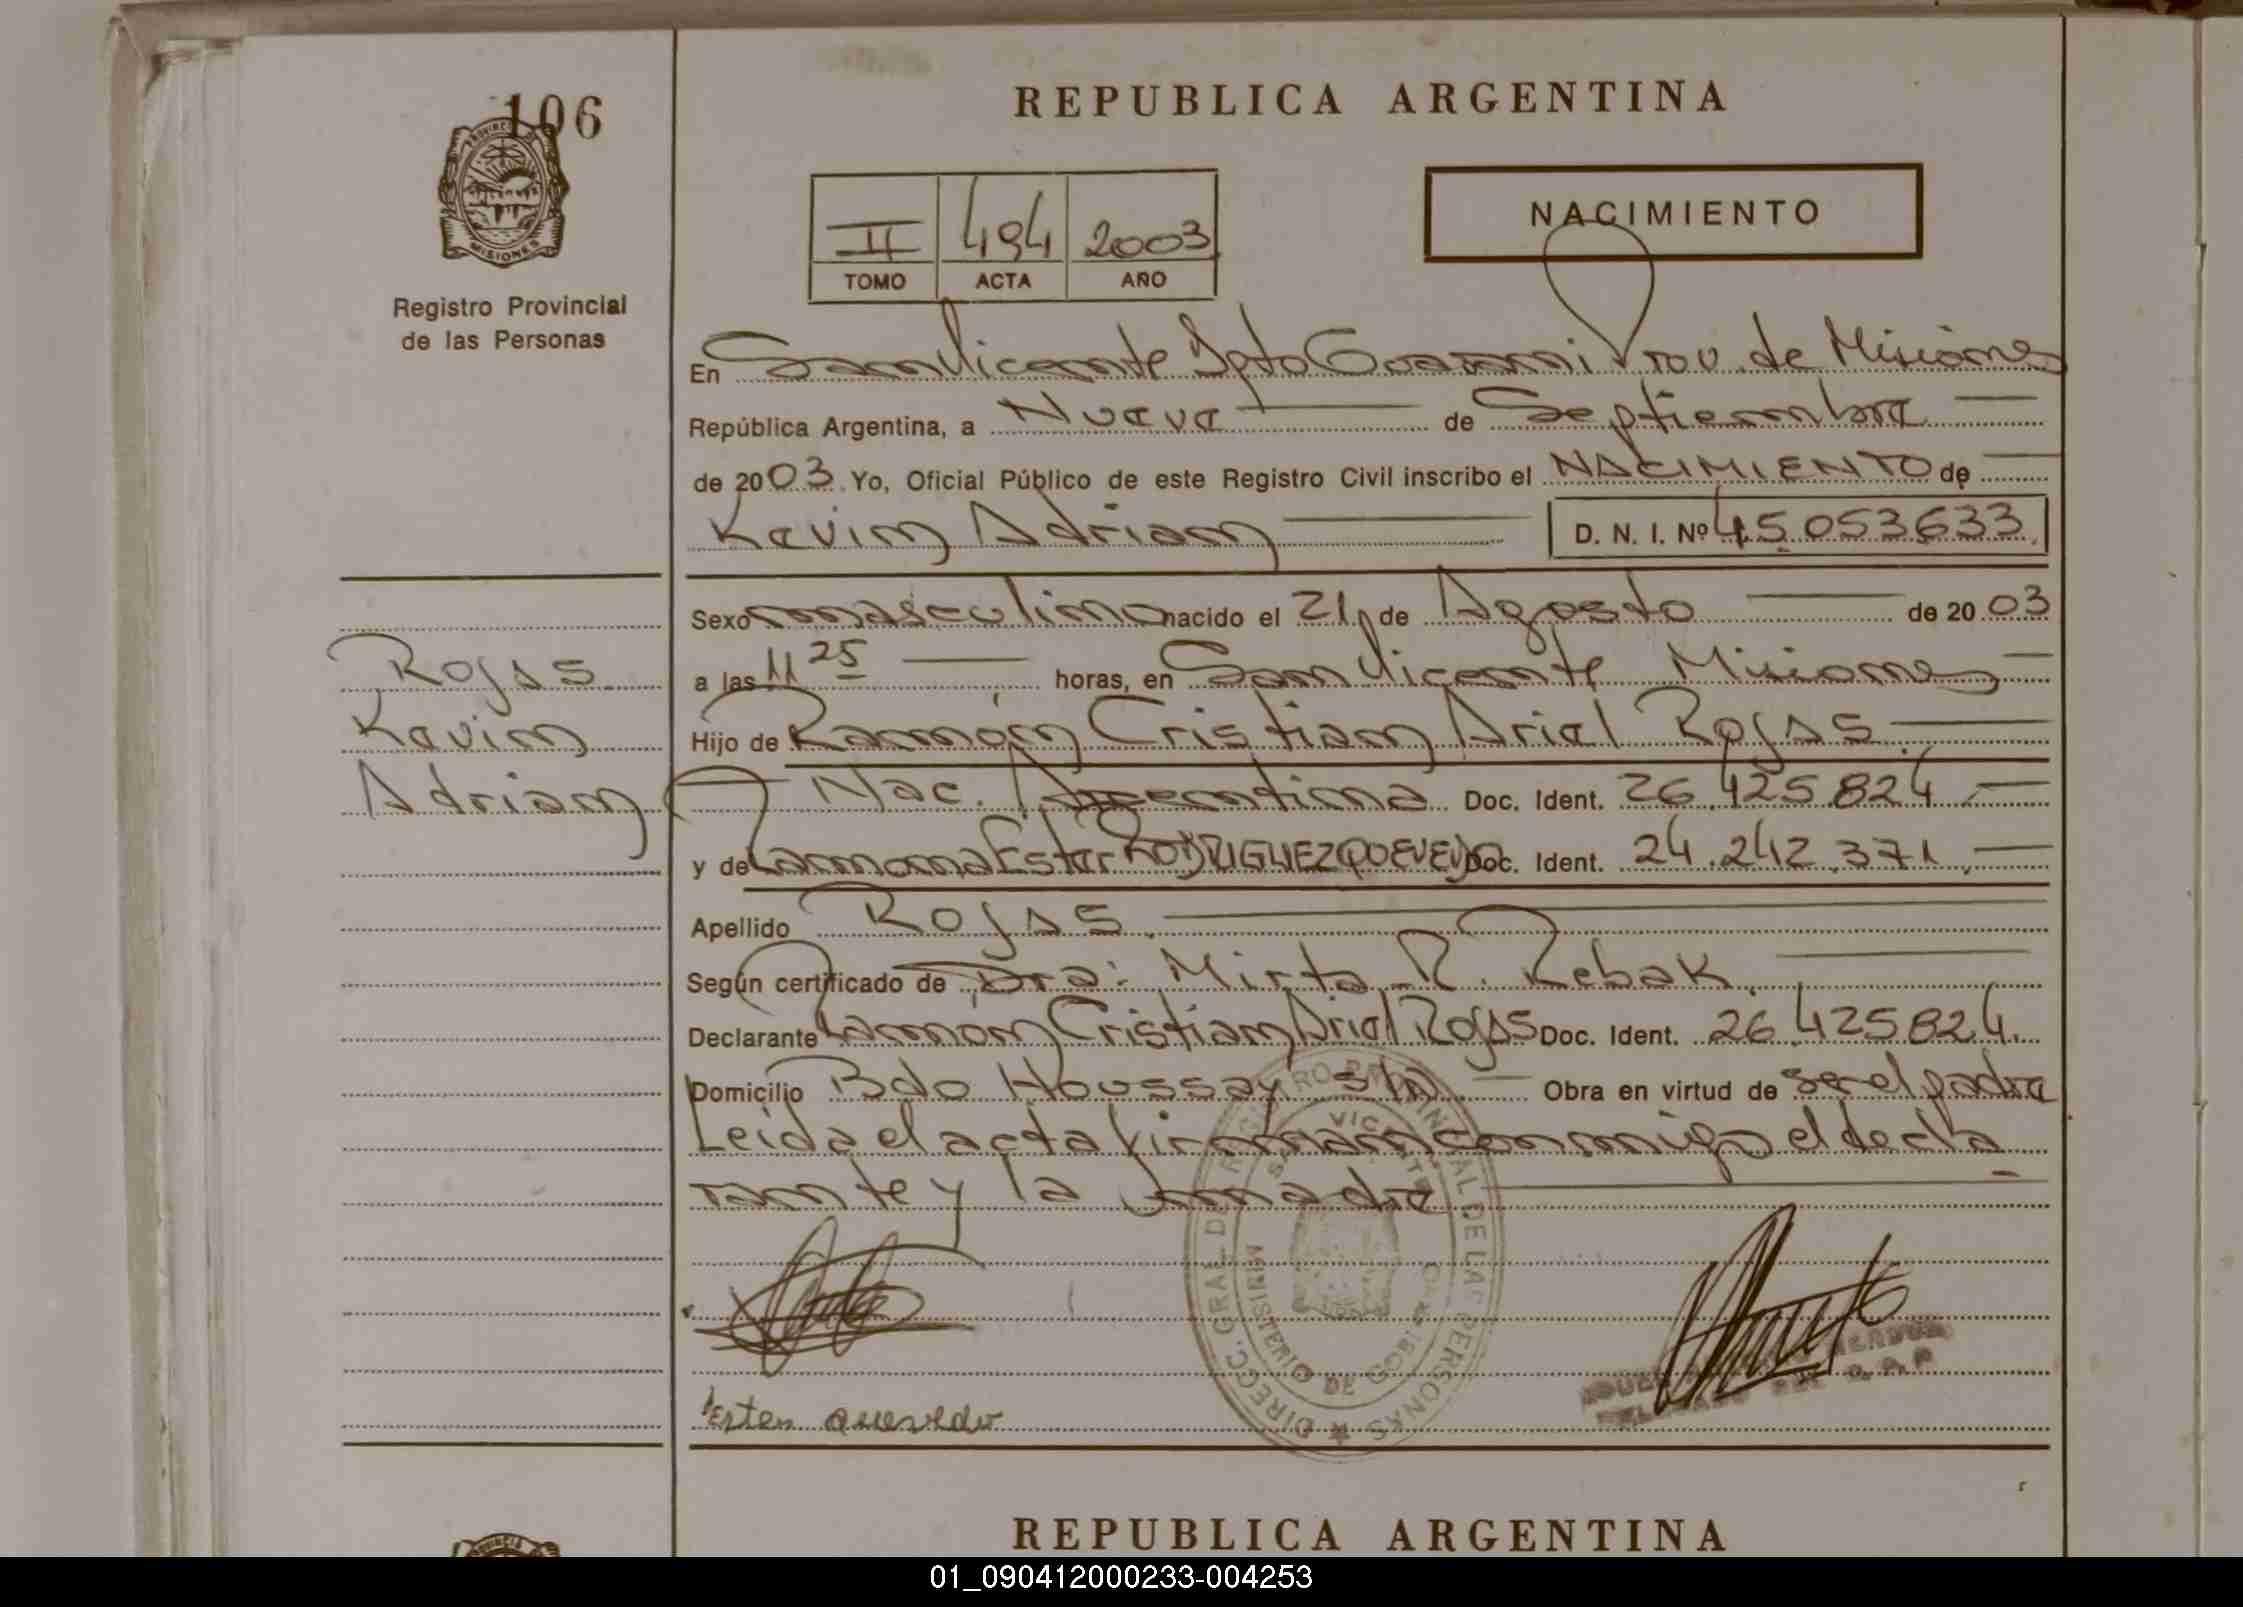 106
REPUBLICA ARGENTINA
PROVINCIA DE
MISIONES
Registro Provincial
de las Personas
II 494 2003
TOMO ACTA AÑO
NACIMIENTO
En San Vicente Dpto Guaraní Prov. de Misiones
República Argentina, a Nueve de Septiembre
de 2003 Yo, Oficial Público de este Registro Civil inscribo el NACIMIENTO de
Kevin Adrian D. N. I. Nº 45.053.633
Sexo masculino nacido el 21 de Agosto de 2003
a las 11 25 horas, en San Vicente Misiones
Hijo de Ramón Cristian Ariel Rojas
Nac. Argentina Doc. Ident. 26.425.824
y de Ramona Ester RODRIGUEZ QUEVEDO Doc. Ident. 24.242.371
Apellido Rojas
Según certificado de Dra: Mirta R. Rebak
Declarante Ramón Cristian Ariel Rojas Doc. Ident. 26.425.824
Domicilio Bdo Houssay s/n Obra en virtud de ser el padre
Leida el acta firman conmigo el decla
rante y la madre
Rojas
Kevin
Adrian
DIRECC. GRAL DEL REGISTRO PROVINCIAL DE LAS PERSONAS
SAN VICENTE
MINISTERIO DE GOBIERNO
Ester quevedo
REPUBLICA ARGENTINA
PROVINCIA
01_090412000233-004253